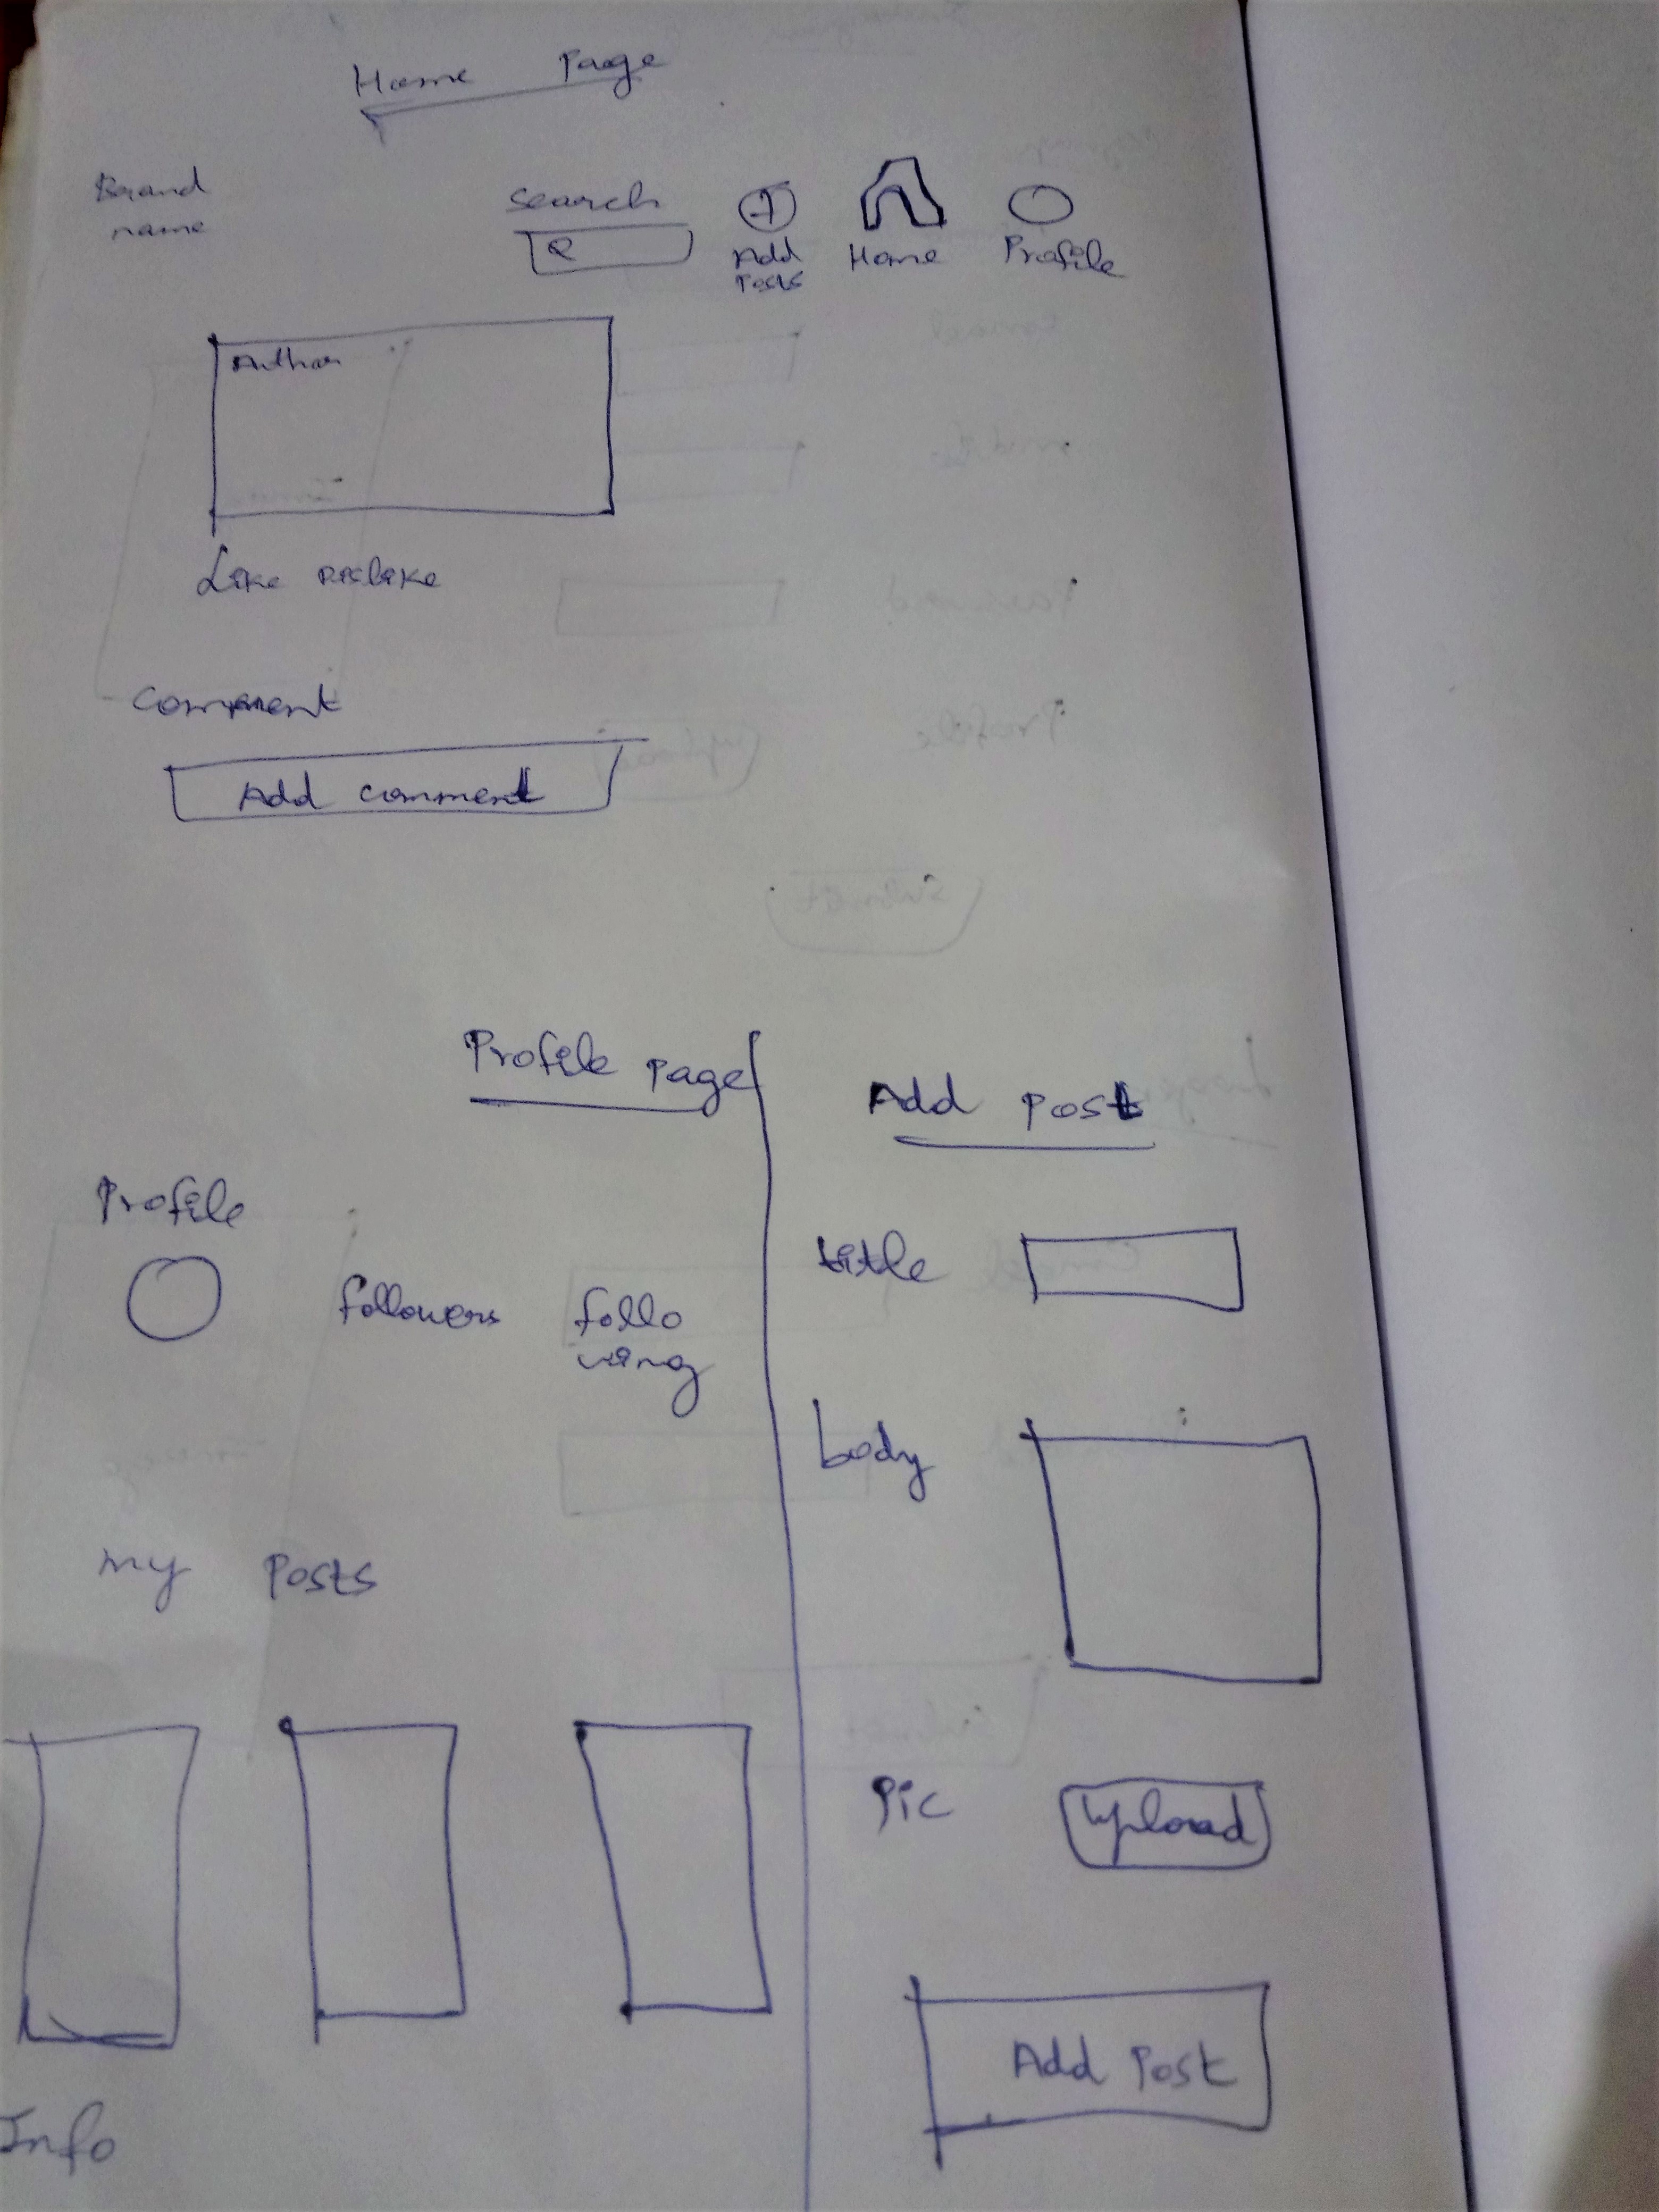 Home Page
Brand
name
search
Add
Posts
Home
Profile
Author
Like Dislike
Comment
Add comment
Profile Page
Profile
followers
follo
wing
my Posts
Info
Add post
title
body
Pic
Upload
Add Post